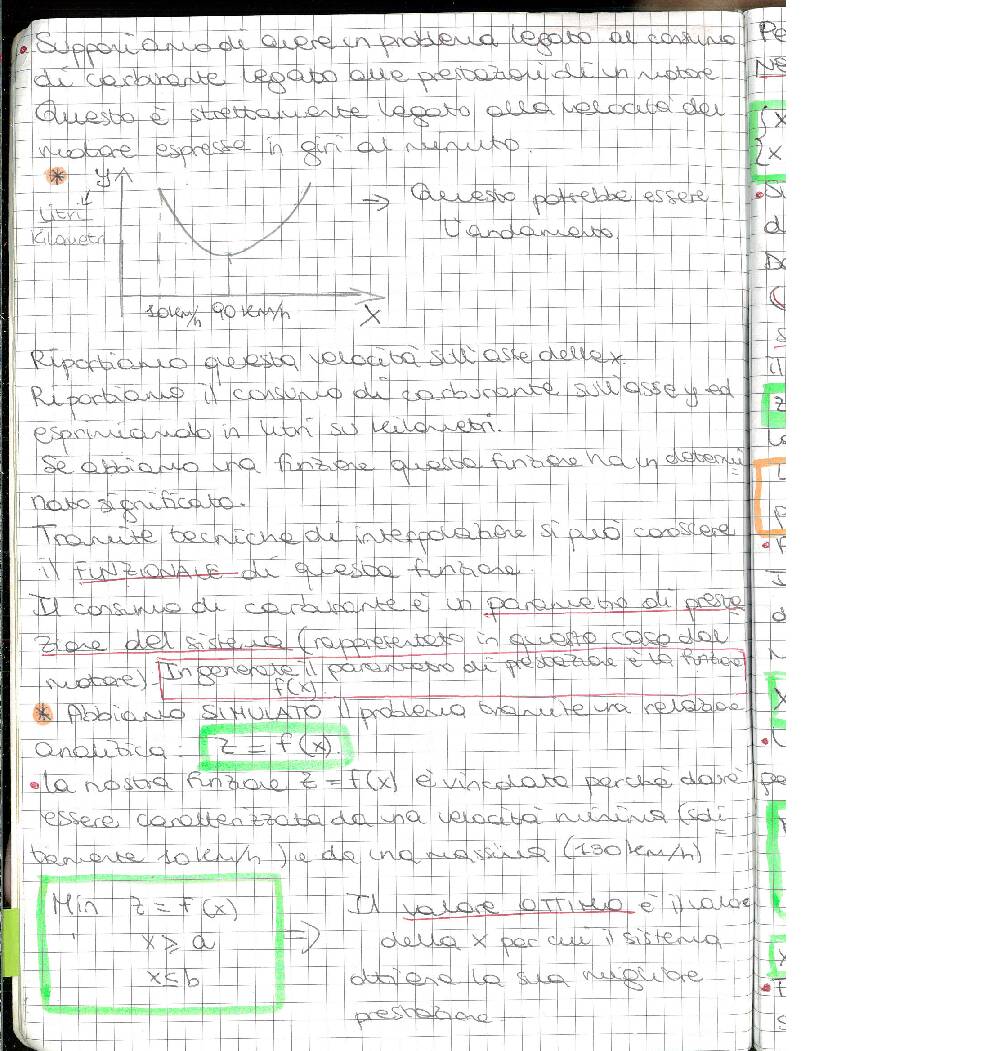 Supponiamo di avere un problema legato al consumo
di carburante legato alle prestazioni di un motore
Questo è strettamente legato alla velocità del
motore espressa in giri al minuto.
* y
Litri
Kilometri
→ Questo potrebbe essere
l'andamento
10 km/h 90 km/h x
Riportiamo questa velocità sull'asse delle x.
Riportiamo il consumo di carburante sull'asse y ed
esprimiamolo in litri su kilometri.
Se abbiamo una funzione questa funzione ha un determi
nato significato.
Tramite tecniche di interpolazione si può conoscere
il FUNZIONALE di questa funzione.
Il consumo di carburante è un parametro di presta
zione del sistema (rappresentato in questo caso dal
motore). In generale il parametro di prestazione è la funzione
f(x).
* Abbiamo SIMULATO il problema tramite una relazione
analitica: z = f(x).
• la nostra funzione z = f(x) è vincolata perchè dovrà
essere caratterizzata da una velocità minima (soli
tamente 10 km/h) e da una massima (130 km/h)
Min z = f(x)
x ≥ a
x ≤ b
⇒ Il valore OTTIMO è il valore
della x per cui il sistema
ottiene la sua migliore
prestazione